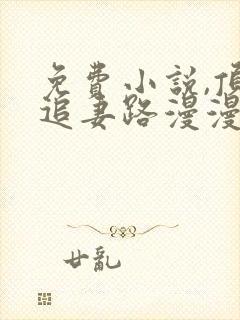 免費小說,傾
追妻路漫漫
廿亂